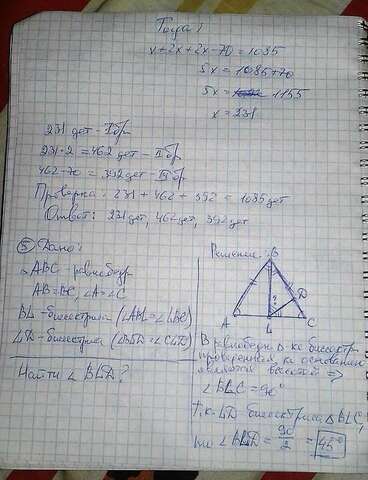 Тогда:
x+2x+2x-70=1085
5x = 1085+70
5x = 1155
x = 231
231 дет - I бр
231·2 = 462 дет - II бр
462-70 = 392 дет - III бр
Проверка: 231 + 462 + 392 = 1085 дет
Ответ: 231 дет, 462 дет, 392 дет
⑤ Дано:
△ABC - равнобедр
AB=BC, ∠A=∠C
BL - биссектриса (∠ABL=∠LBC)
LD - биссектриса (∠BLD=∠CLD)
Найти ∠BLD?
Решение:
B
D
?
A
L
C
В равнобедр △ке биссектр.
проведенная, к основанию
является высотой ⇒
∠BLC = 90°
Т.к. LD биссектриса △BLC,
∠BLD = 90/2 = 45°